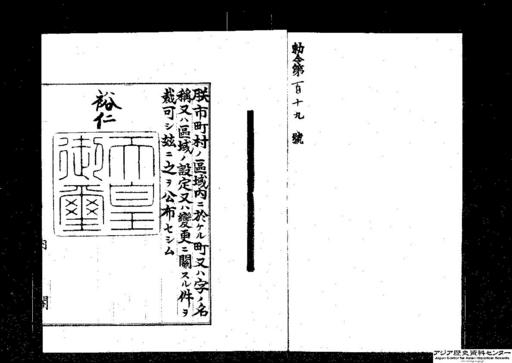 勅令第百十九號
朕市町村ノ區域内ニ於ケル町又ハ字ノ名
稱又ハ區域ノ設定又ハ變更ニ關スル件ヲ
裁可シ玆ニ之ヲ公布セシム
裕仁
天皇
御璽
内閣
アジア歴史資料センター
Japan Center for Asian Historical Records